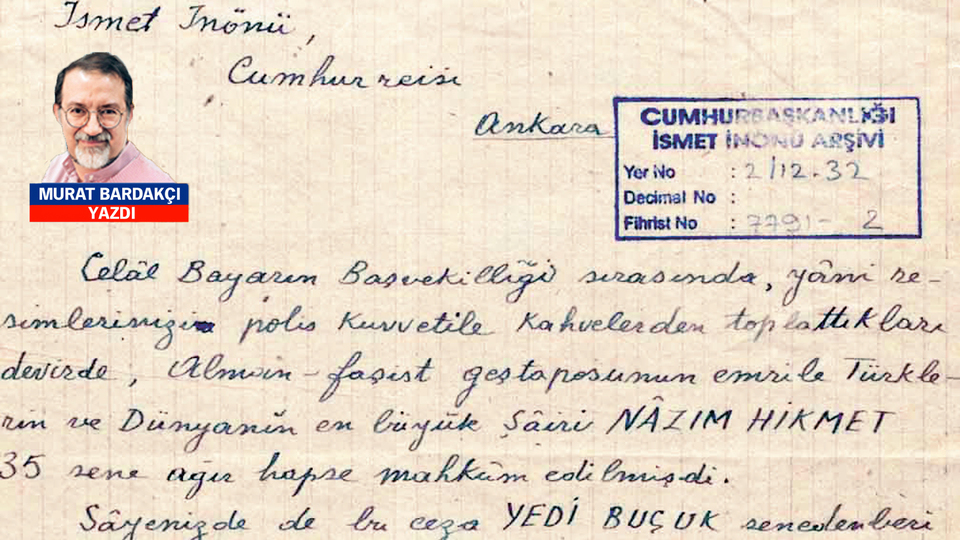 İsmet İnönü,
Cumhurreisi
Ankara
CUMHURBAŞKANLIĞI
İSMET İNÖNÜ ARŞİVİ
Yer No : 2/12.32
Decimal No :
Fihrist No : 7791- 2
MURAT BARDAKÇI
YAZDI
Celâl Bayarın Başvekilliği sırasında, yâni re-
simlerinizin polis kuvvetile kahvelerden toplattıkları
devirde, Alman-faşist geştaposunun emrile Türkle-
rin ve Dünyanın en büyük Şâiri NÂZIM HİKMET
35 sene ağır hapse mahkûm edilmişdi.
Sâyenizde de bu ceza YEDİ BUÇUK senedenberi